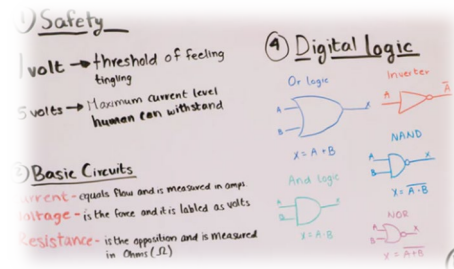 ① Safety
1 volt → threshold of feeling
tingling
5 volts → Maximum current level
human can withstand
② Basic Circuits
Current - equals flow and is measured in amps.
Voltage - is the force and it is labled as volts
Resistance - is the opposition and is measured
in Ohms (Ω)
④ Digital Logic
Or logic
A
B
X
X = A + B
And logic
A
B
X
X = A · B
Inverter
A
A̅
NAND
A
B
X
X = A̅ ·̅ B̅
NOR
A
B
X
X = A̅ +̅ B̅